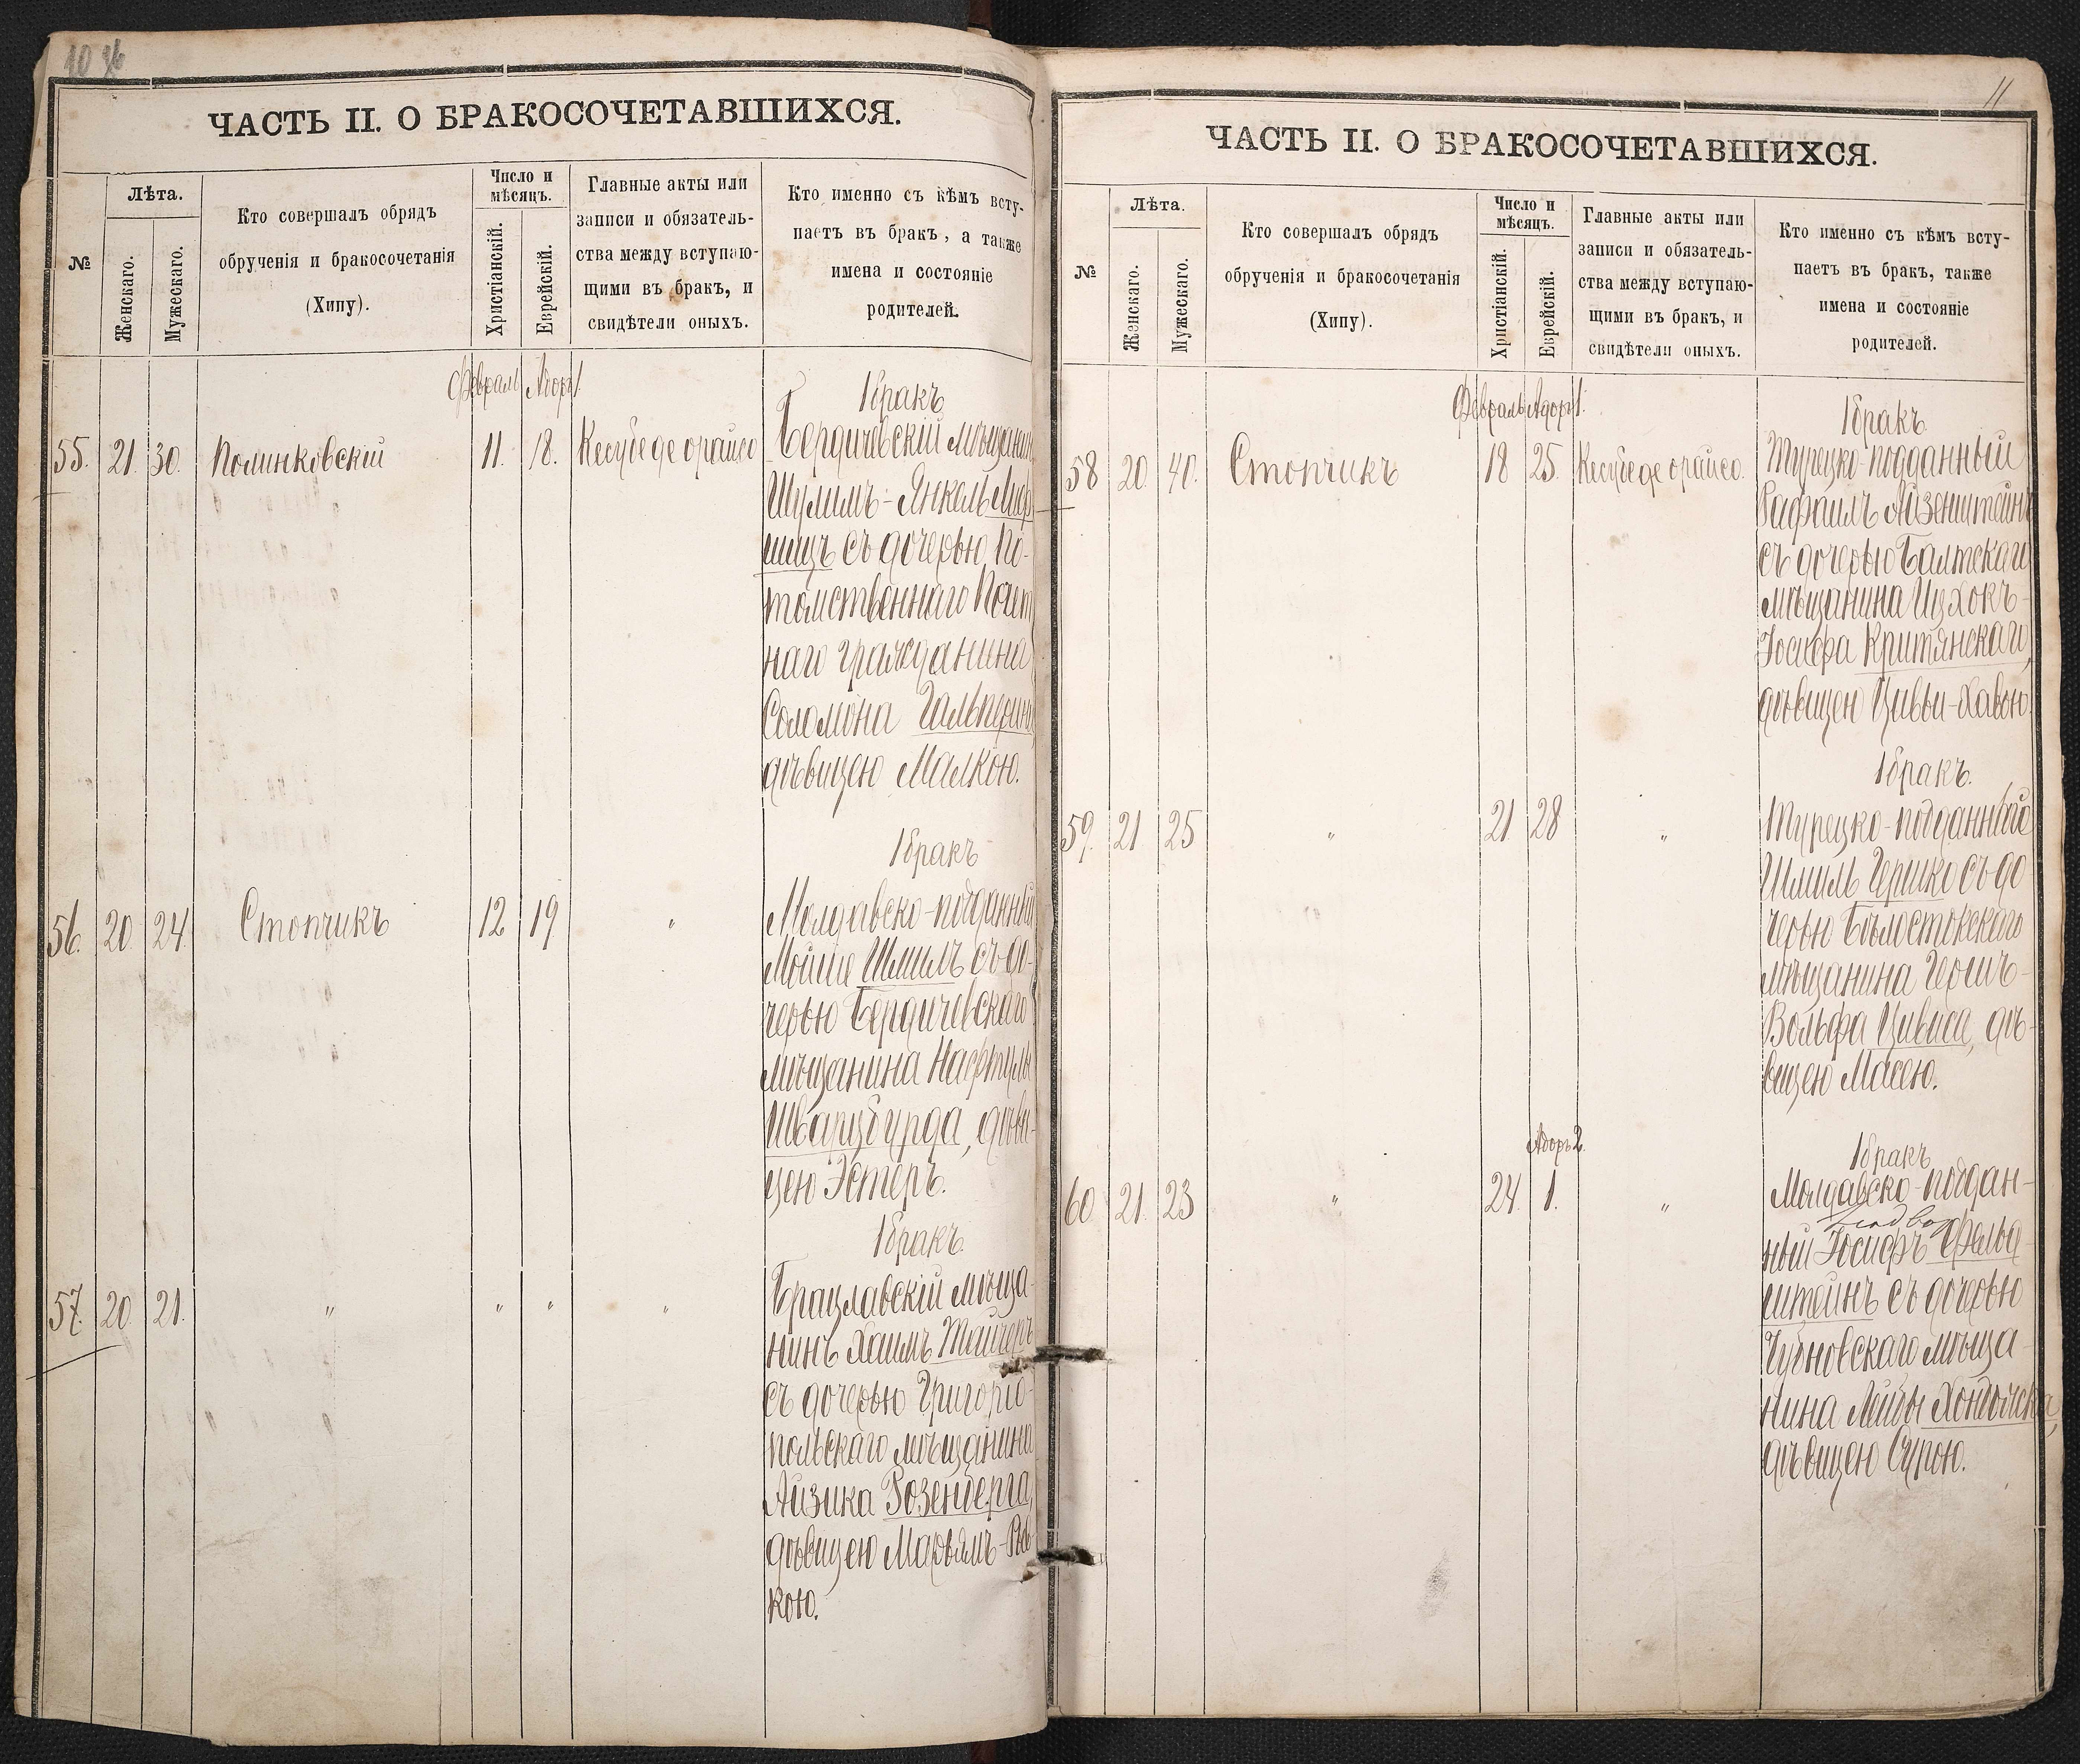 10 об
ЧАСТЬ II. О БРАКОСОЧЕТАВШИХСЯ.
№
Лѣта.
Женскаго.
Мужескаго.
Кто совершалъ обрядъ
обрученія и бракосочетанія
(Хипу).
Число и
мѣсяцъ.
Христіанскій.
Еврейскій.
Главные акты или
записи и обязатель-
ства между вступаю-
щими въ бракъ, и
свидѣтели оныхъ.
Кто именно съ кѣмъ всту-
паетъ въ бракъ, а также
имена и состояніе
родителей.
Февраль Адоръ 1.
1 бракъ
55. 21. 30. Полинковскій 11. 18. Кесубе де орайсо Бердичевскій мѣщанинъ
Шулимъ-Янкель Лиф
шицъ съ дочерью По-
томственнаго Почет
наго гражданина
Соломона Гальперина
дѣвицею Малкою.
1 бракъ
56. 20. 24. Стопчикъ 12 19 " Молдавско-подданный
Мойше Шмилъ съ до-
черью Бердичевскаго
мѣщанина Нафтулы
Шварцбурда, дѣви-
цею Эстеръ.
1 бракъ.
57. 20. 21. " " " " Брацлавскій мѣща-
нинъ Хаимъ Тайчеръ
съ дочерью Григоріо-
польскаго мѣщанина
Айзика Розенберга,
дѣвицею Марьямъ-Рив
кою.
11
ЧАСТЬ II. О БРАКОСОЧЕТАВШИХСЯ.
№
Лѣта.
Женскаго.
Мужескаго.
Кто совершалъ обрядъ
обрученія и бракосочетанія
(Хипу).
Число и
мѣсяцъ.
Христіанскій.
Еврейскій.
Главные акты или
записи и обязатель-
ства между вступаю-
щими въ бракъ, и
свидѣтели оныхъ.
Кто именно съ кѣмъ всту-
паетъ въ бракъ, также
имена и состояніе
родителей.
Февраль Адоръ 1.
1 бракъ
58 20. 40. Стопчикъ 18 25. Кесубе де орайсо. Турецко-подданный
Рафаилъ Айзенштейнъ
съ дочерью Балтскаго
мѣщанина Ицхокъ-
Іосифа Критянскаго,
дѣвицею Цивви-Хавою.
1 бракъ.
59. 21 25 " 21. 28 " Турецко-подданный
Шмиль Гершко съ до
черью Бѣлостокскаго
мѣщанина Гершъ-
Вольфа Цивиса, дѣ-
вицею Масею.
Адоръ 2.
1 бракъ
60. 21. 23 " 24. 1. " Молдавско-поддан-
ный Іосифъ Фельд
штейнъ съ дочерью
Чудновскаго мѣща-
нина Лейбы
дѣвицею Сурою.